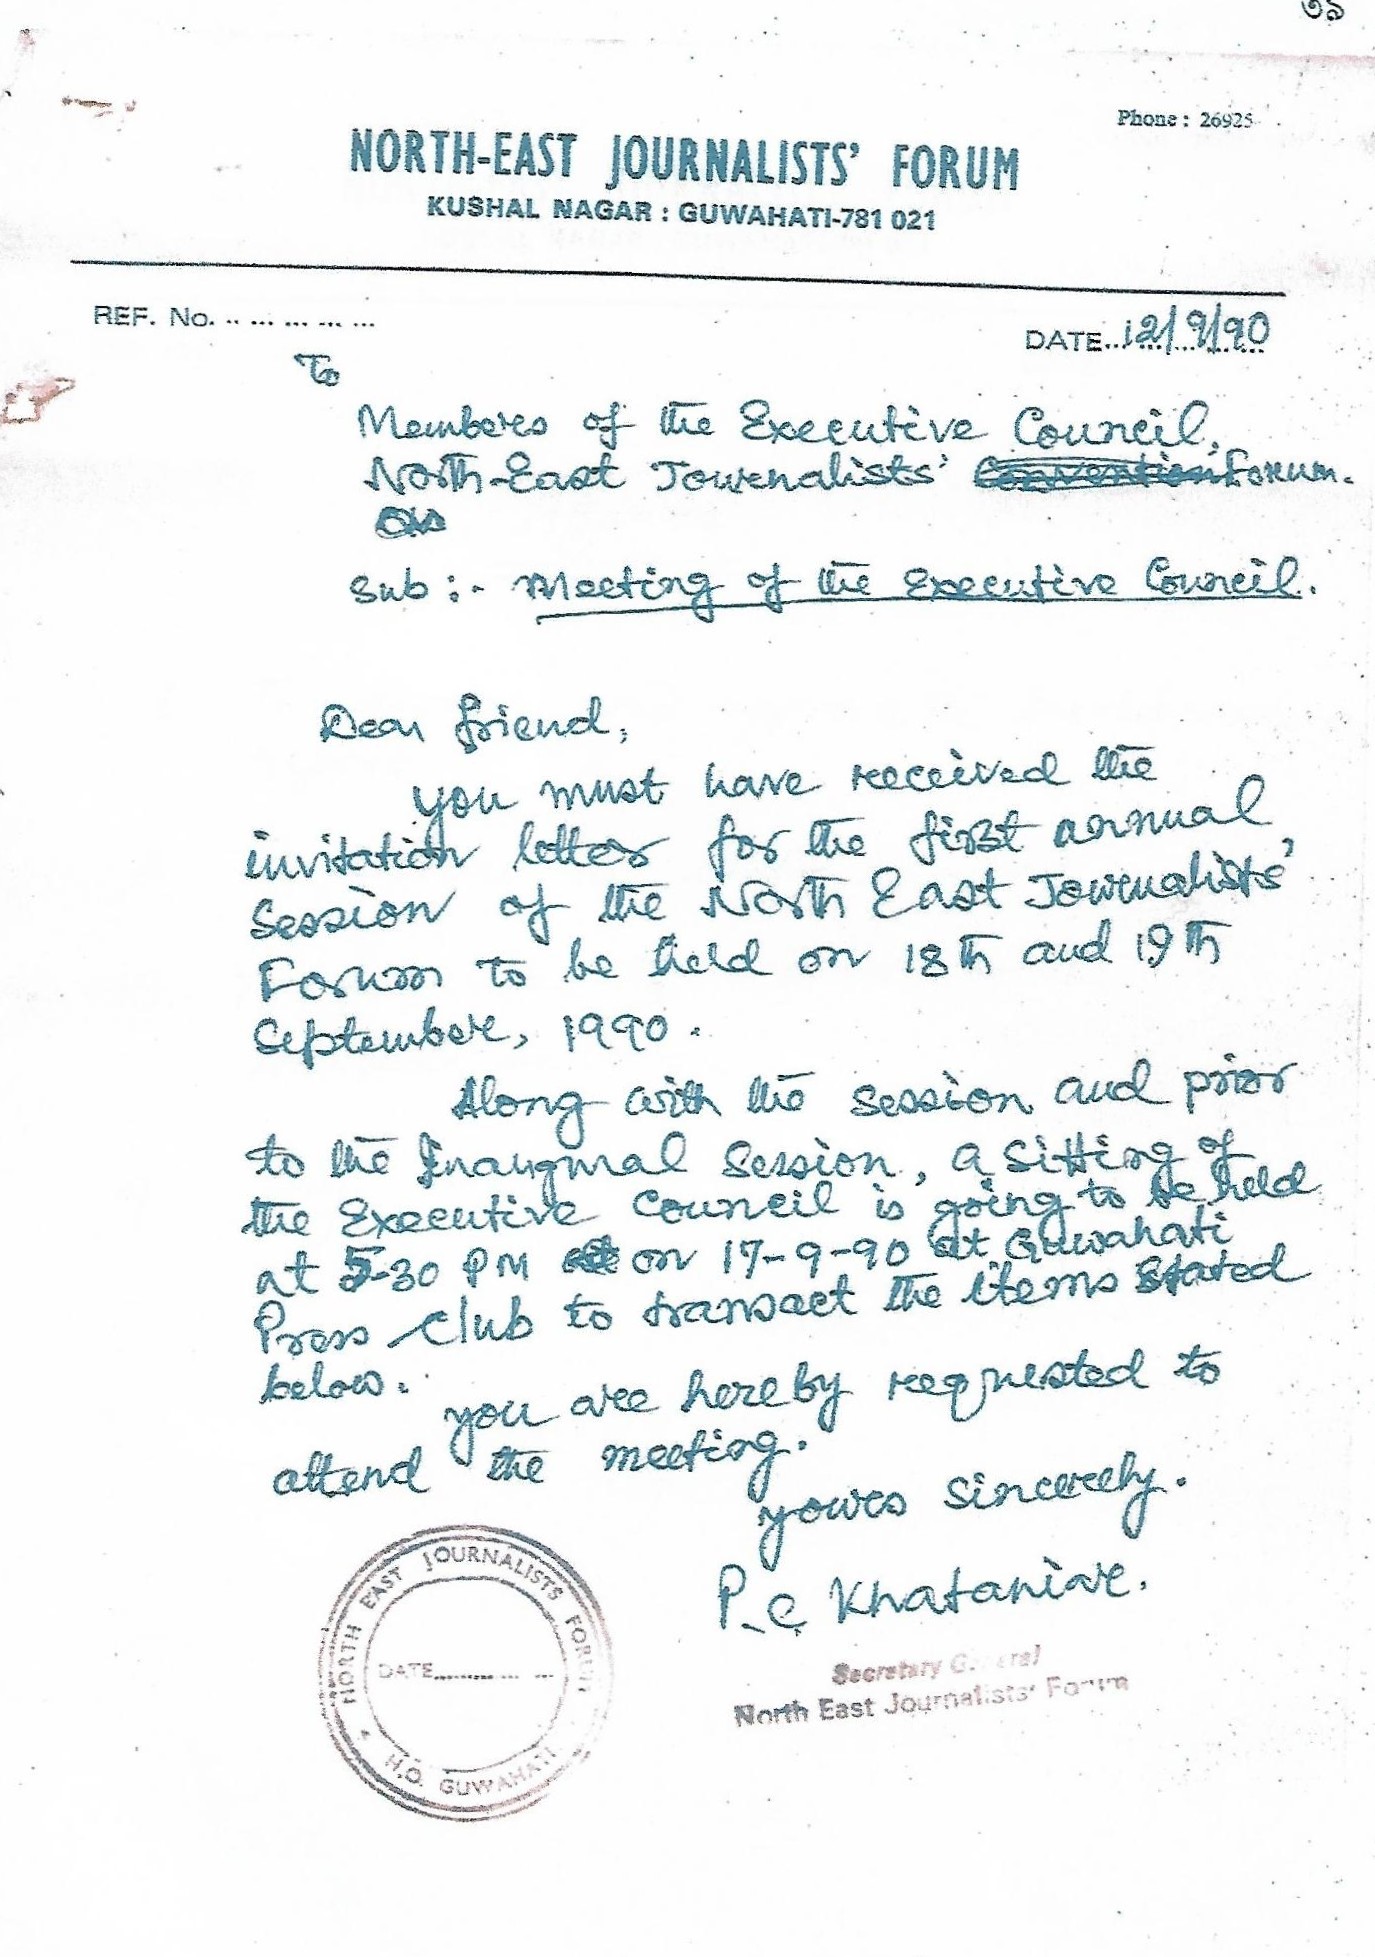 ৩৯
Phone : 26925
NORTH-EAST JOURNALISTS' FORUM
KUSHAL NAGAR : GUWAHATI-781 021
REF. No. .. ... ... ... ...
DATE...12/9/90
To
Members of the Executive Council,
North-East Journalists' Convention Forum.
Sub :- Meeting of the Executive Council.
Dear friend,
you must have received the
invitation letter for the first annual
Session of the North East Journalists'
Forum to be held on 18th and 19th
September, 1990.
Along with the session and prior
to the Inaugural Session, a sitting of
the Executive Council is going to be held
at 5-30 PM on 17-9-90 at Guwahati
Press Club to transact the items stated
below.
you are hereby requested to
attend the meeting.
yours sincerely.
P.C Khataniar.
Secretary General
North East Journalists' Forum
NORTH EAST JOURNALISTS FORUM
DATE............ ...
H.O. GUWAHATI